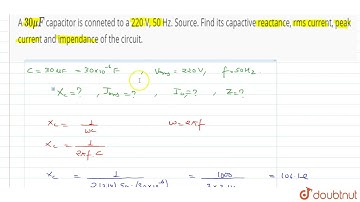 A 30μF capacitor is conneted to a 220 V, 50 Hz. Source. Find its capactive reactance, rms current, peak
current and impendance of the circuit.
C = 30μF = 30×10⁻⁶ F , Vrms = 220V, f = 50Hz.
Xc = ? , Irms = ? , I₀ = ? , Z = ?
Xc = 1/ωC ω = 2πf
Xc = 1/2πf C
Xc = = 1000 = 106 Ω
doubtnut